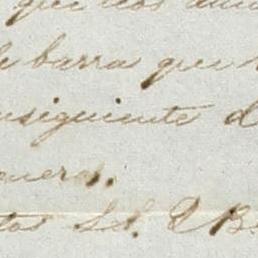 que los
de barra que
nsiguiente d
nera.
tos S.S. Q B.